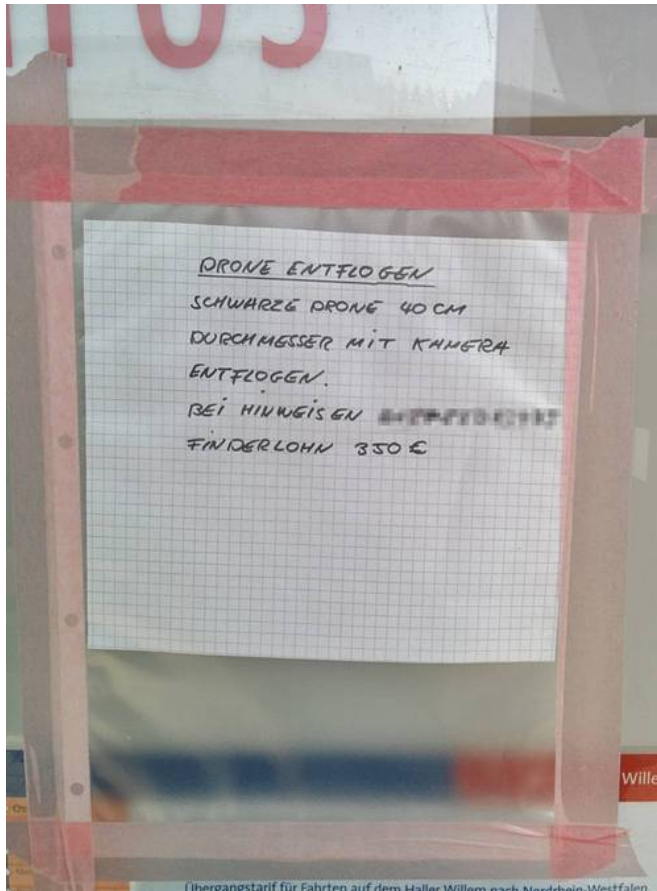 DRONE ENTFLOGEN
SCHWARZE DRONE 40 CM
DURCHMESSER MIT KAMERA
ENTFLOGEN.
BEI HINWEISEN
FINDERLOHN 350 €
Wille
Übergangstarif für Fahrten auf dem Haller Willem nach Nordrhein-Westfalen